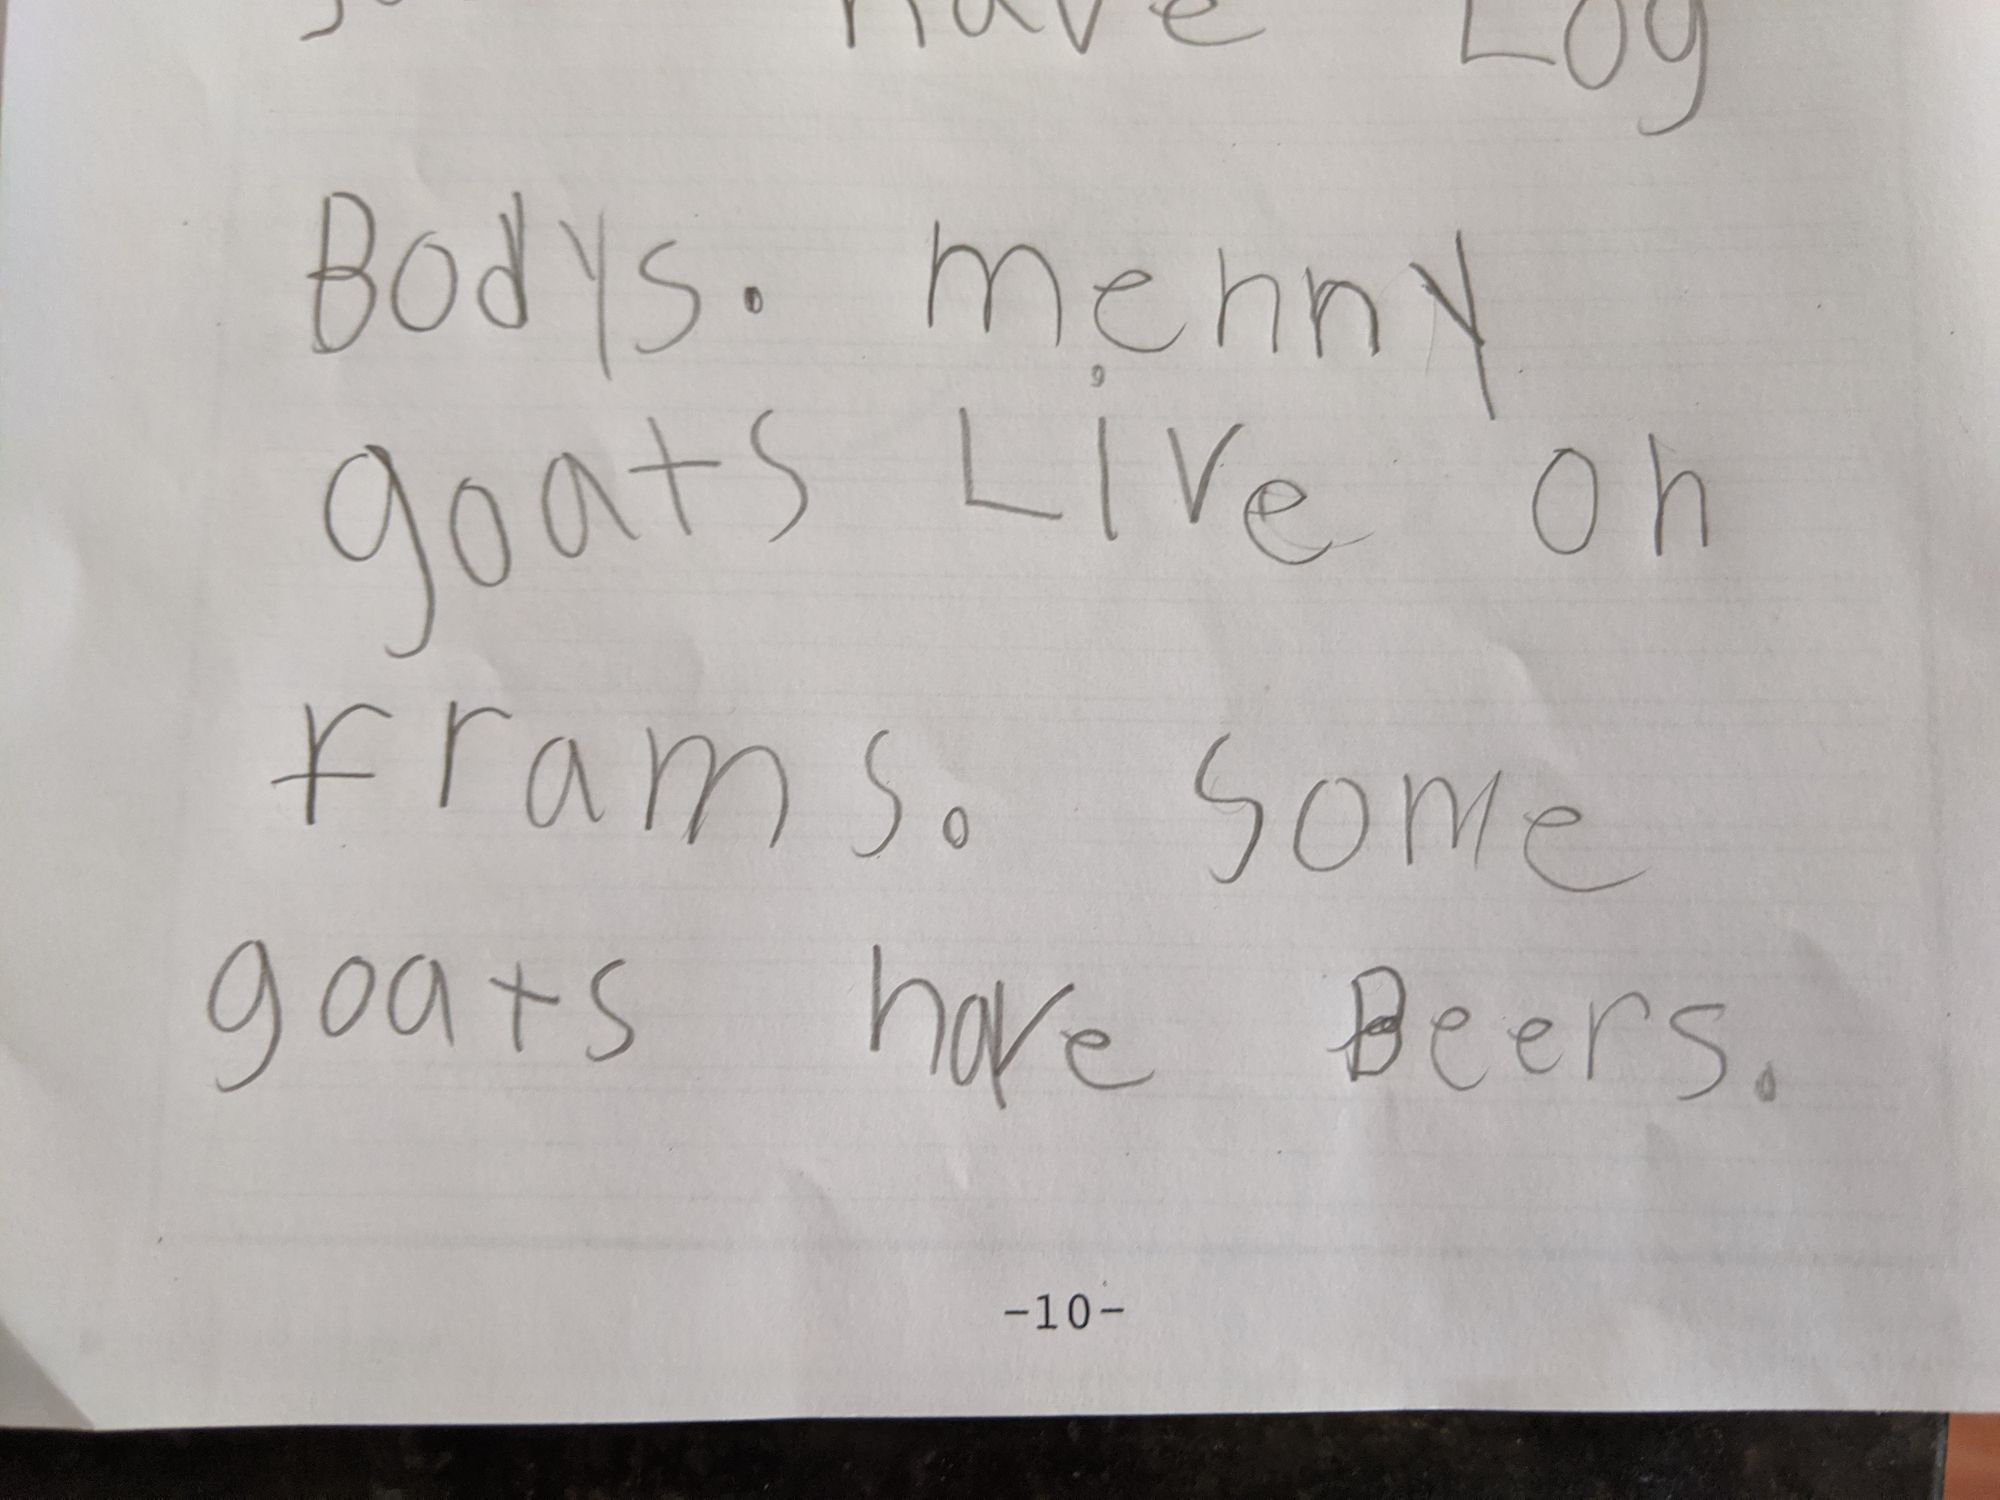 have Log
Bodys. menny
goats Live on
frams. Some
goats have Beers.
-10-